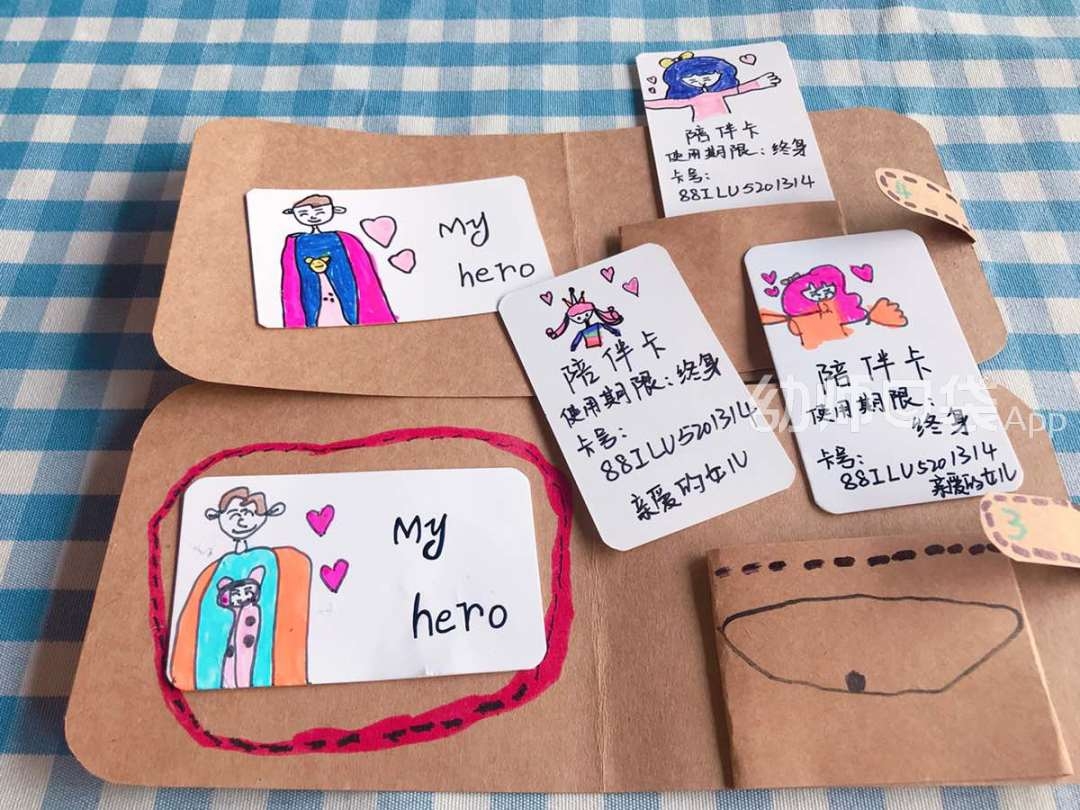 陪伴卡
使用期限：终身
卡号：
88ILU5201314
4
My
hero
陪伴卡
使用期限：终身
卡号：
88ILU5201314
亲爱的女儿
陪伴卡
使用期限：
终身
卡号：
88ILU5201314
亲爱的女儿
幼师口袋App
3
My
hero